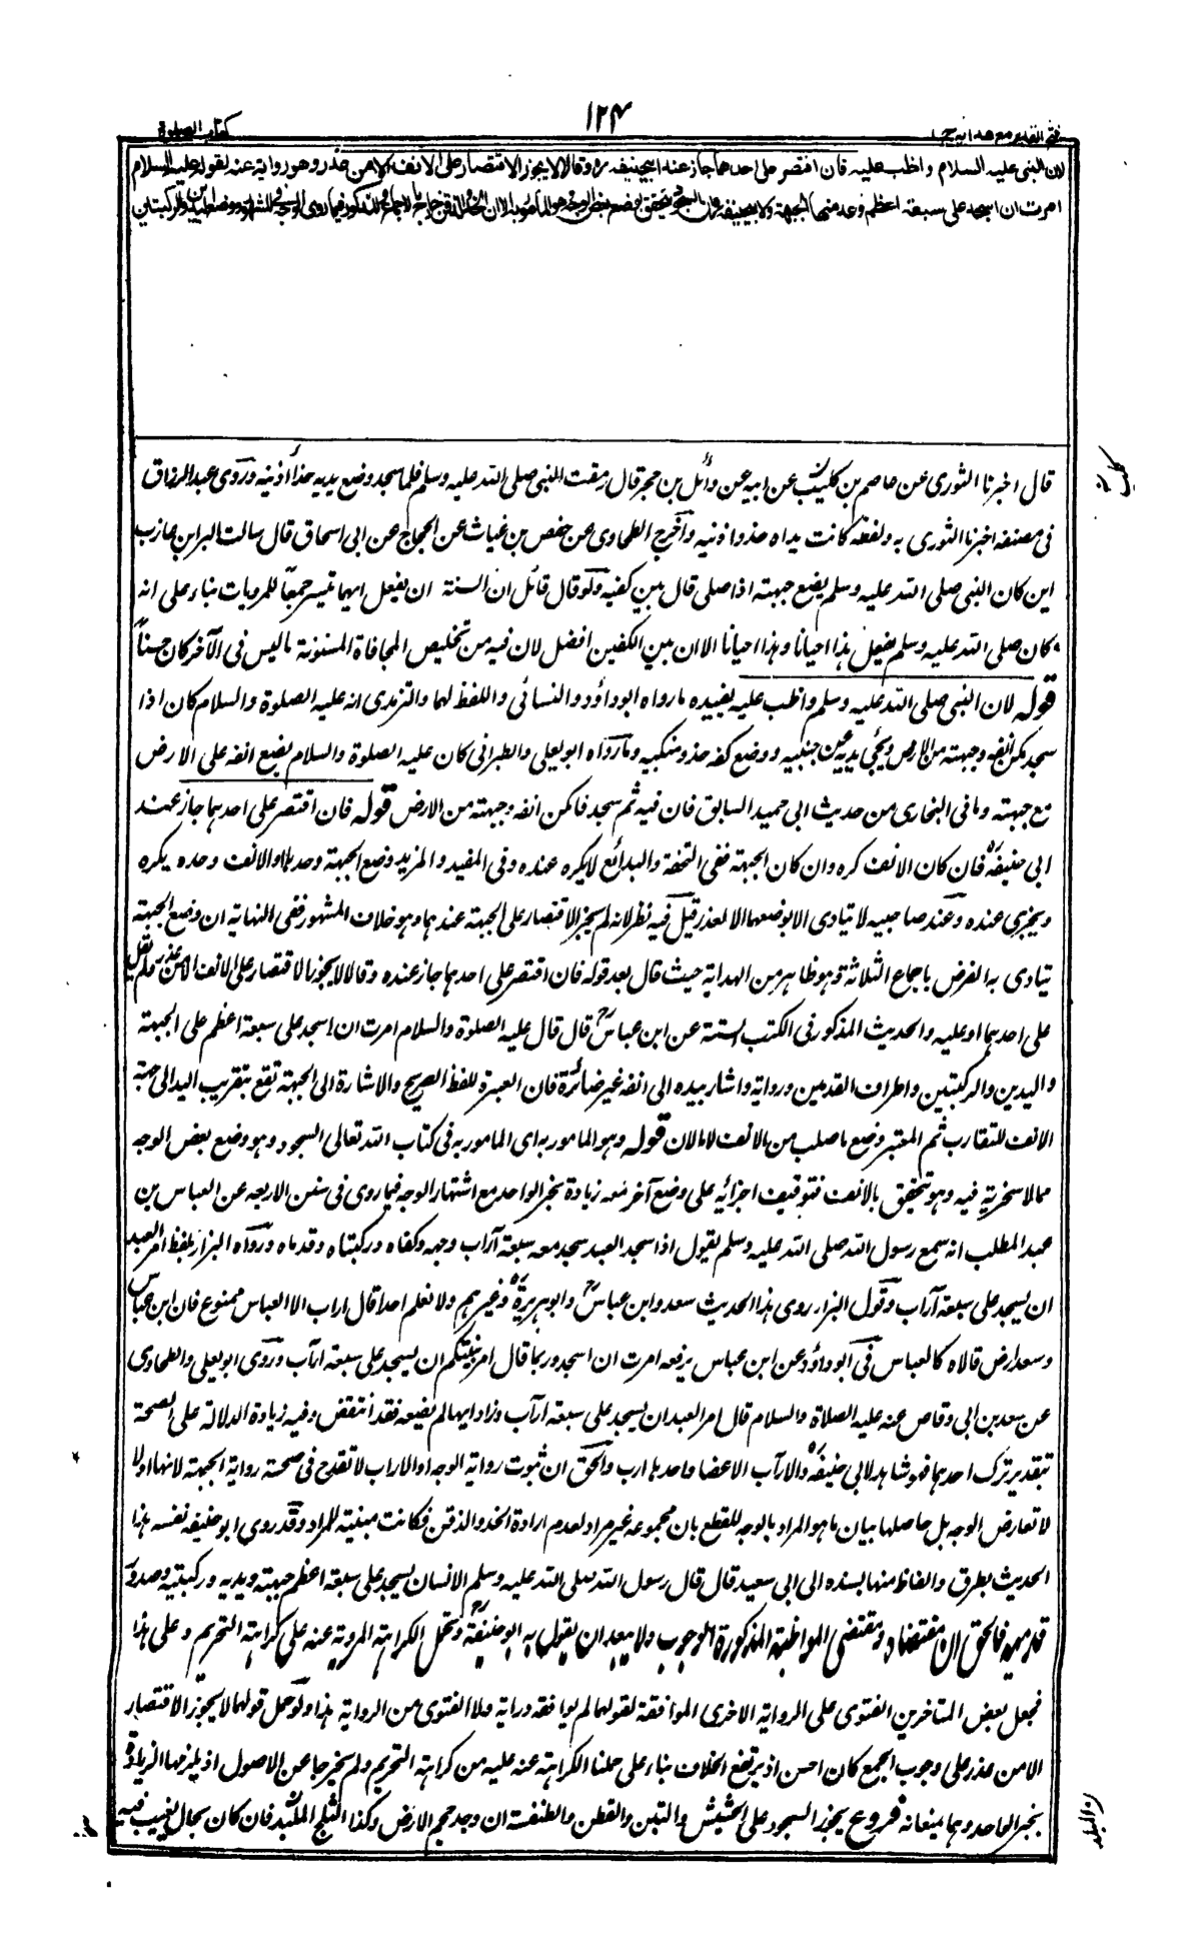 ١٢٤
فتح القدير مع هدايه ج ١
كتاب الصلوة
لان النبى عليه السلام واظب عليه فان اقتصر على احدهما جاز عند ابيحنيفه رح وقالا لا يجوز الاقتصار على الانف الا من عذر وهو رواية عنه لقوله عليه السلام
امرت ان اسجد على سبعة اعظم وعد منها الجبهة ولابيحنيفة ان السجود يتحقق بوضع بعض الوجه وهو المأمور به الا ان الخد والذقن خارج بالاجماع والمذكور فيما روى الوجه فى المشهور ووضع اليدين والركبتين
قال اخبرنا الثورى عن عاصم بن كليب عن ابيه عن وائل بن حجر قال رمقت النبى صلى الله عليه وسلم فلما سجد وضع يديه حذاء اذنيه وروى عبد الرزاق
فى مصنفه اخبرنا الثورى به ولفظه كانت يداه حذو اذنيه واخرج الطحاوى عن حفص بن غياث عن الحجاج عن ابى اسحاق قال سالت البراء بن عازب
اين كان النبى صلى الله عليه وسلم يضع جبهته اذا صلى قال بين كفيه ولو قال قائل ان السنة ان يفعل ايهما تيسر جمعًا للمرويات بناء على انه
كان صلى الله عليه وسلم يفعل هذا احيانا وهذا احيانا الا ان بين الكفين افضل لان فيه من تخليص المجافاة المسنونة ما ليس فى الآخر كان حسنًا
قوله لان النبى صلى الله عليه وسلم واظب عليه يفيده ما رواه ابو داؤد والنسائى واللفظ لهما والترمذى انه عليه الصلوة والسلام كان اذا
سجد مكن انفه وجبهته من الارض ونحى يديه عن جنبيه ووضع كفه حذو منكبيه وما رواه ابو يعلى والطبرانى كان عليه الصلوة والسلام يضع انفه على الارض
مع جبهته وما فى البخارى من حديث ابى حميد السابق فان فيه ثم سجد فامكن انفه وجبهته من الارض قوله فان اقتصر على احدهما جاز عند
ابى حنيفة رح فان كان الانف كره وان كان الجبهة ففى التحفة والبدائع لا يكره عنده وفى المفيد والمزيد وضع الجبهة وحدها او الانف وحده يكره
ويجزى عنده وعند صاحبيه لا يتادى الا بوضعهما الا لعذر قيل فيه نظر لانه لم يجز الاقتصار على الجبهة عندهما وهو خلاف المشهور ففى النهاية ان وضع الجبهة
يتادى به الفرض باجماع الثلاثة وهو ظاهر من الهداية حيث قال بعد قوله فان اقتصر على احدهما جاز عنده وقالا لا يجوز الاقتصار على الانف الا من عذر ولم يقل
على احدهما او عليه والحديث المذكور فى الكتب الستة عن ابن عباس رض قال قال عليه الصلوة والسلام امرت ان اسجد على سبعة اعظم على الجبهة
واليدين والركبتين واطراف القدمين ورواية واشار بيده الى انفه غير ضائرة فان العبرة للفظ الصريح والاشارة الى الجبهة تقع بتقريب اليد الى جهة
الانف للتقارب ثم المعتبر وضع ما صلب من الانف لا ما لان قوله وهو المامور به اى المامور به فى كتاب الله تعالى السجود وهو وضع بعض الوجه
مما لا سخرية فيه وهو يتحقق بالانف فتوقيف اجزائه على وضع آخر معه زيادة بخبر الواحد مع اشتهار الوجه فيما روى فى سنن الاربعه عن العباس بن
عبد المطلب انه سمع رسول الله صلى الله عليه وسلم يقول اذا سجد العبد سجد معه سبعة آراب وجهه وكفاه وركبتاه وقدماه ورواه البزار بلفظ امر العبد
ان يسجد على سبعة آراب وقول البزار روى هذا الحديث سعد وابن عباس رض وابو هريرة رض وغيرهم ولا نعلم احدا قال اراب الا العباس ممنوع فان ابن عباس
وسعدا رض قالاه كالعباس فى ابو داؤد عن ابن عباس يرفعه امرت ان اسجد وربما قال امر نبيكم ان يسجد على سبعة ارآب وروى ابو يعلى والطحاوى
عن سعد بن ابى وقاص عنه عليه الصلاة والسلام قال امر العبد ان يسجد على سبعة ارآب وزاد ايها لم يضعه فقد انتقض وفيه زيادة الدلالة على الصحة
بتقدير ترك احدهما فهو شاهد لابى حنيفة رح والارآب الاعضا واحدها ارب والحق ان ثبوت رواية الوجه او الاراب لا تقدح فى صحة رواية الجبهة لانها اولا
لا تعارض الوجه بل حاصلها بيان ما هو المراد بالوجه للقطع بان مجموعه غير مراد لعدم ارادة الخد والذقن فكانت مبينة للمراد وقد روى ابو حنيفة نفسه هذا
الحديث بطرق والفاظ منها بسنده الى ابى سعيد قال قال رسول الله صلى الله عليه وسلم الانسان يسجد على سبعة اعظم جبهته ويديه وركبتيه وصدور
قدميه فالحق ان مقتضاه ومقتضى المواظبة المذكورة الوجوب ولا يبعد ان يقول به ابو حنيفة رح وتحمل الكراهة المروية عنه على كراهة التحريم وعلى هذا
فجعل بعض المتاخرين الفتوى على الرواية الاخرى الموافقة لقولهما لم يوافقه دراية ولا القوى من الرواية هذا ولو حمل قولهما لا يجوز الاقتصار
الا من عذر على وجوب الجمع كان احسن اذ يرتفع الخلاف بناء على حملنا الكراهة عنه عليه من كراهة التحريم ولم يخرجا عن الاصول اذ يلزمهما الزيادة
بخبر الواحد وهما يمنعانه فروع يجوز السجود على الحشيش والتبن والقطن والطنفسة ان وجد حجم الارض وكذا الثلج الملبد فان كان بحال يغيب فيه